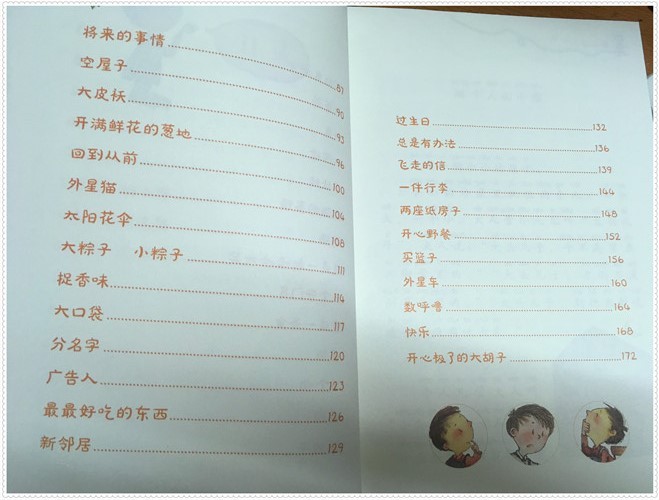 将来的事情……87
空屋子……90
大皮袄……93
开满鲜花的葱地……96
回到从前……100
外星猫……104
太阳花伞……108
大粽子 小粽子……111
捉香味……114
大口袋……117
分名字……120
广告人……123
最最好吃的东西……126
新邻居……129
过生日……132
总是有办法……136
飞走的信……139
一件行李……144
两座纸房子……148
开心野餐……152
买篮子……156
外星车……160
数呼噜……164
快乐……168
开心极了的大胡子……172